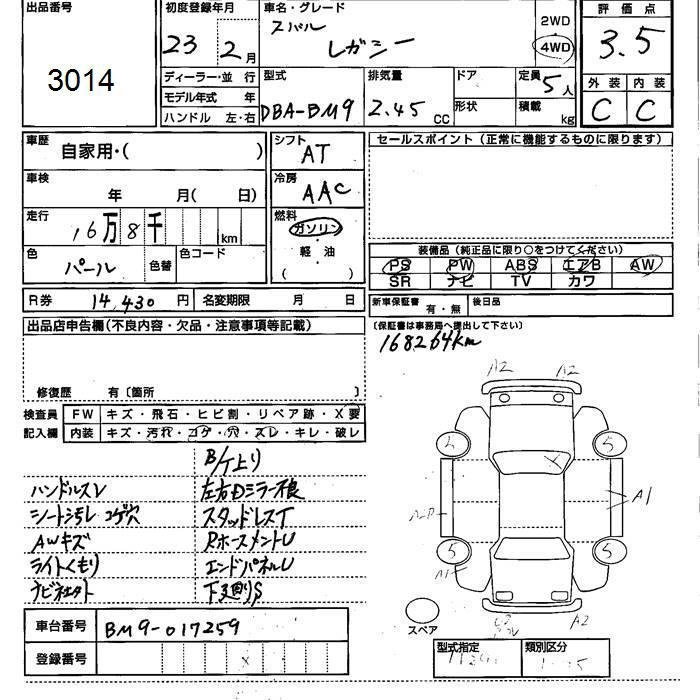 出品番号
3014
初度登録年月
23年 2月
車名・グレード
スバル
レガシー
2WD
4WD
評価点
3.5
外装 内装
C C
ディーラー・並行
モデル年式 年
ハンドル 左・右
型式
DBA-BM9
排気量
2.45 CC
ドア
形状
定員 5人
積載 kg
車歴 自家用・( )
車検 年 月( 日)
走行 16万8千 km
色 パール 色替 色コード
シフト AT
冷房 AAC
燃料
ガソリン
・
軽・油
・
( )
セールスポイント(正常に機能するものに限ります)
装備品(純正品に限り○をつけてください)
PS PW ABS エアB AW
SR ナビ TV カワ
R券 14,430円 名変期限 月 日
新車保証書 有・無 後日品
(保証書は事務局へ提出して下さい)
168264km
出品店申告欄(不良内容・欠品・注意事項等記載)
修復歴 有〔箇所 〕
検査員記入欄
FW キズ・飛石・ヒビ割・リペア跡・X要
内装 キズ・汚れ・コゲ・穴・スレ・キレ・破レ
B/T上り
ハンドルスレ 左右Dミラー不良
シート汚レ コゲ穴 スタッドレスT
AWキズ RホースメントU
ライトくもり エンドパネルU
下廻りS
車台番号 BM9-017259
登録番号
A2 A2
2 5
X
A1
5 5
A1
A2
スペア
型式指定 類別区分